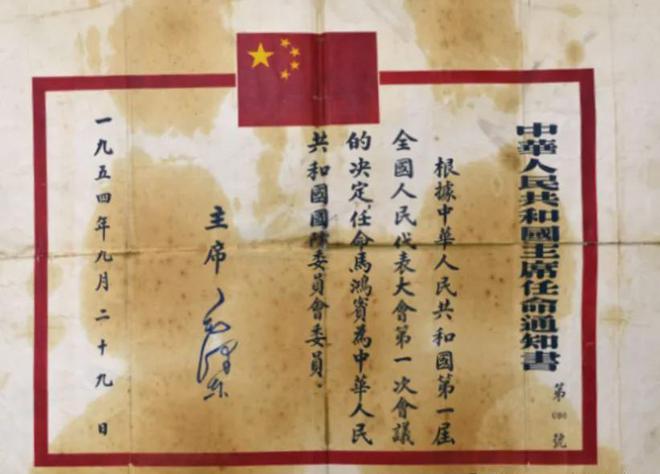 中華人民共和國主席任命通知書
第 號
根據中華人民共和國第一屆
全國人民代表大會第一次會議
的決定,任命馬鴻賓為中華人民
共和國國防委員會委員.
主席 毛澤東
一九五四年九月二十九日